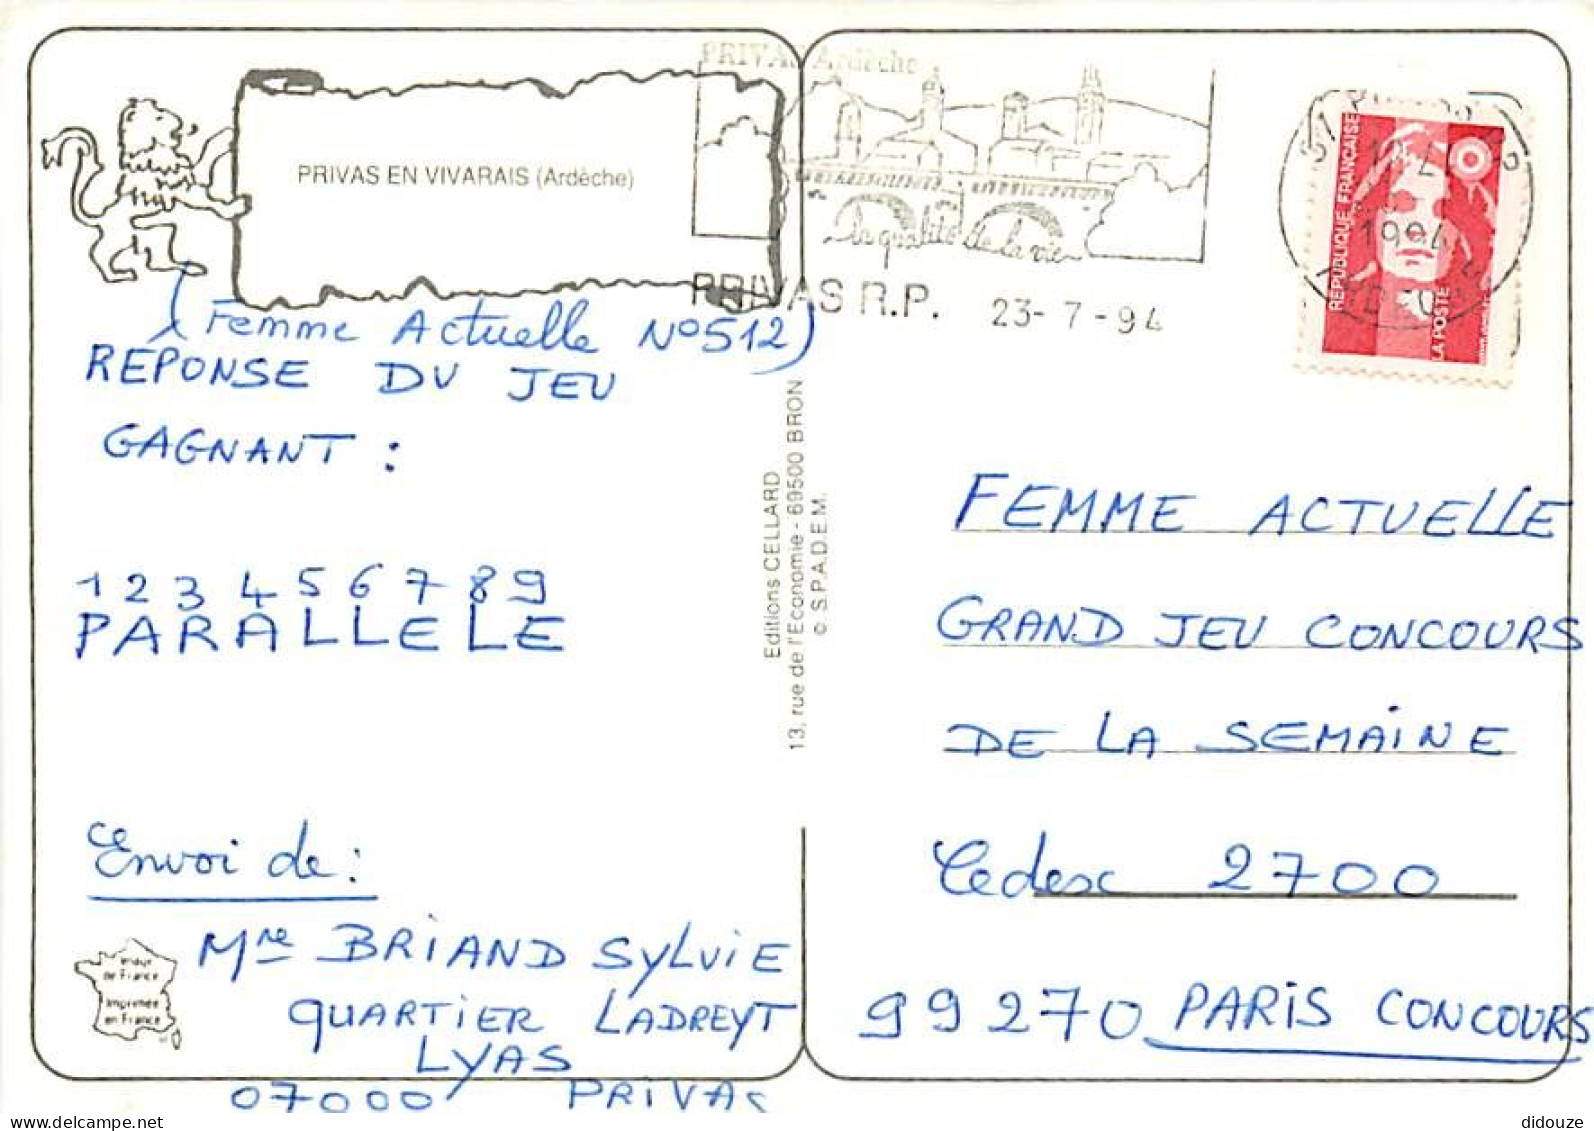 PRIVAS Ardèche
PRIVAS EN VIVARAIS (Ardèche)
la qualité de la vie
PRIVAS R.P. 23-7-94
1994
REPUBLIQUE FRANÇAISE
LA POSTE
(Femme Actuelle N°512)
REPONSE DU JEU
GAGNANT :
1 2 3 4 5 6 7 8 9
PARALLELE
Envoi de :
Mme BRIAND SYLVIE
QUARTIER LADREYT
LYAS
07000 PRIVAS
Image
de France
Imprimée
en France
Editions CELLARD
13, rue de l'Economie - 69500 BRON
© S.P.A.D.E.M.
FEMME ACTUELLE
GRAND JEU CONCOURS
DE LA SEMAINE
Cedex 2700
99270 PARIS CONCOURS
didouze